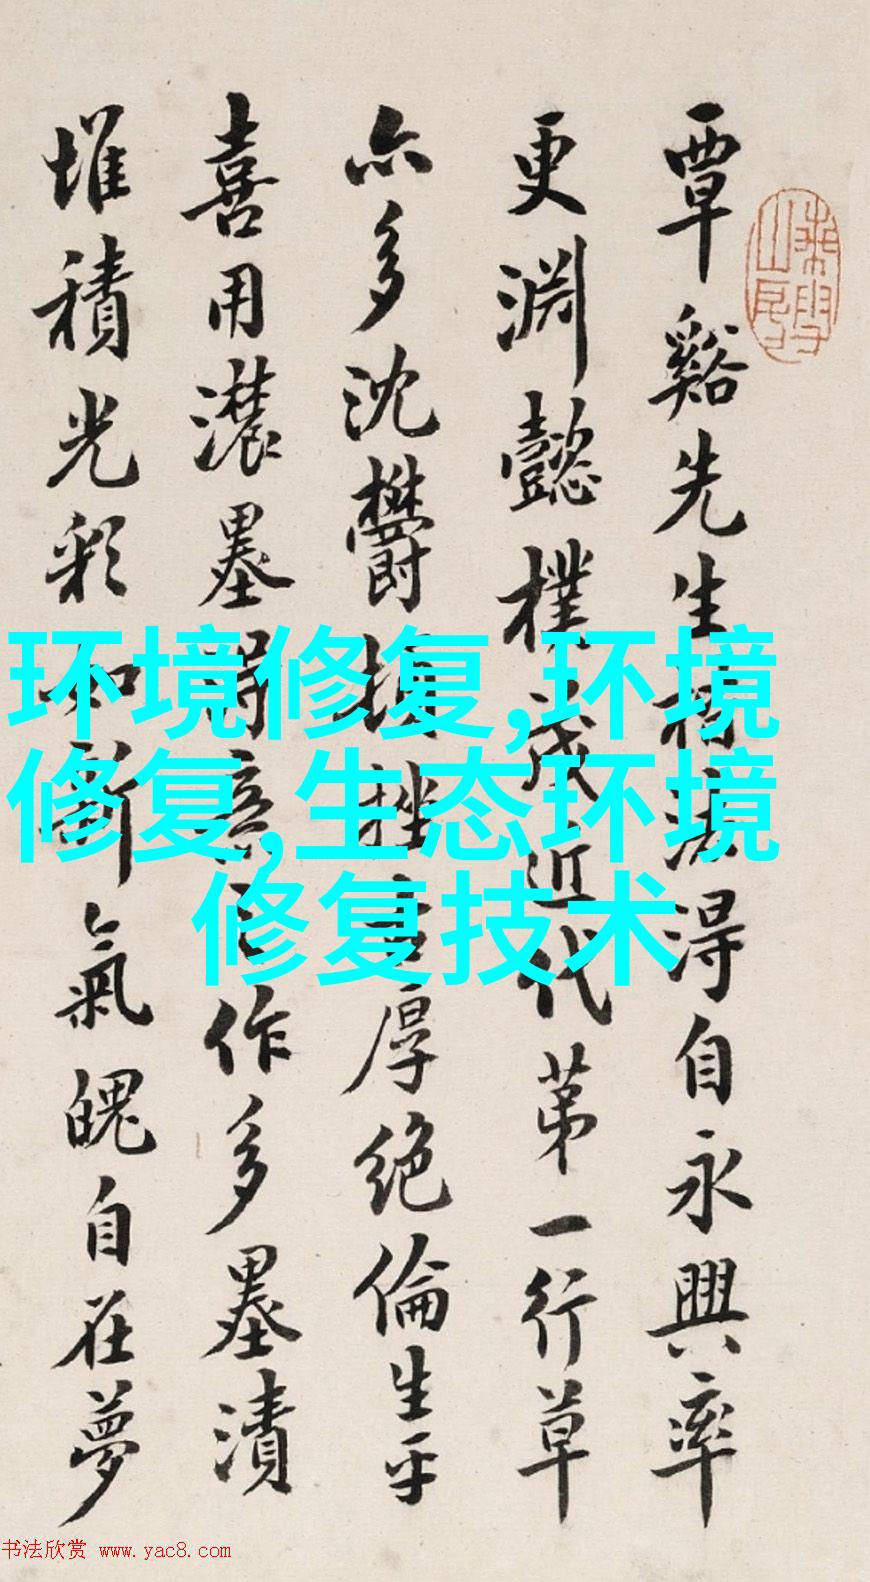 覃谿先生楷法淂自永興率
更渊懿樸茂近代苐一行草
亦多沈欝頓挫雄厚絶倫生平
喜用濃墨得意之作多墨漬
堆積光彩如新氣魄自在夢
环境修复,环境
修复,生态环境
修复技术
书法欣赏 www.yac8.com